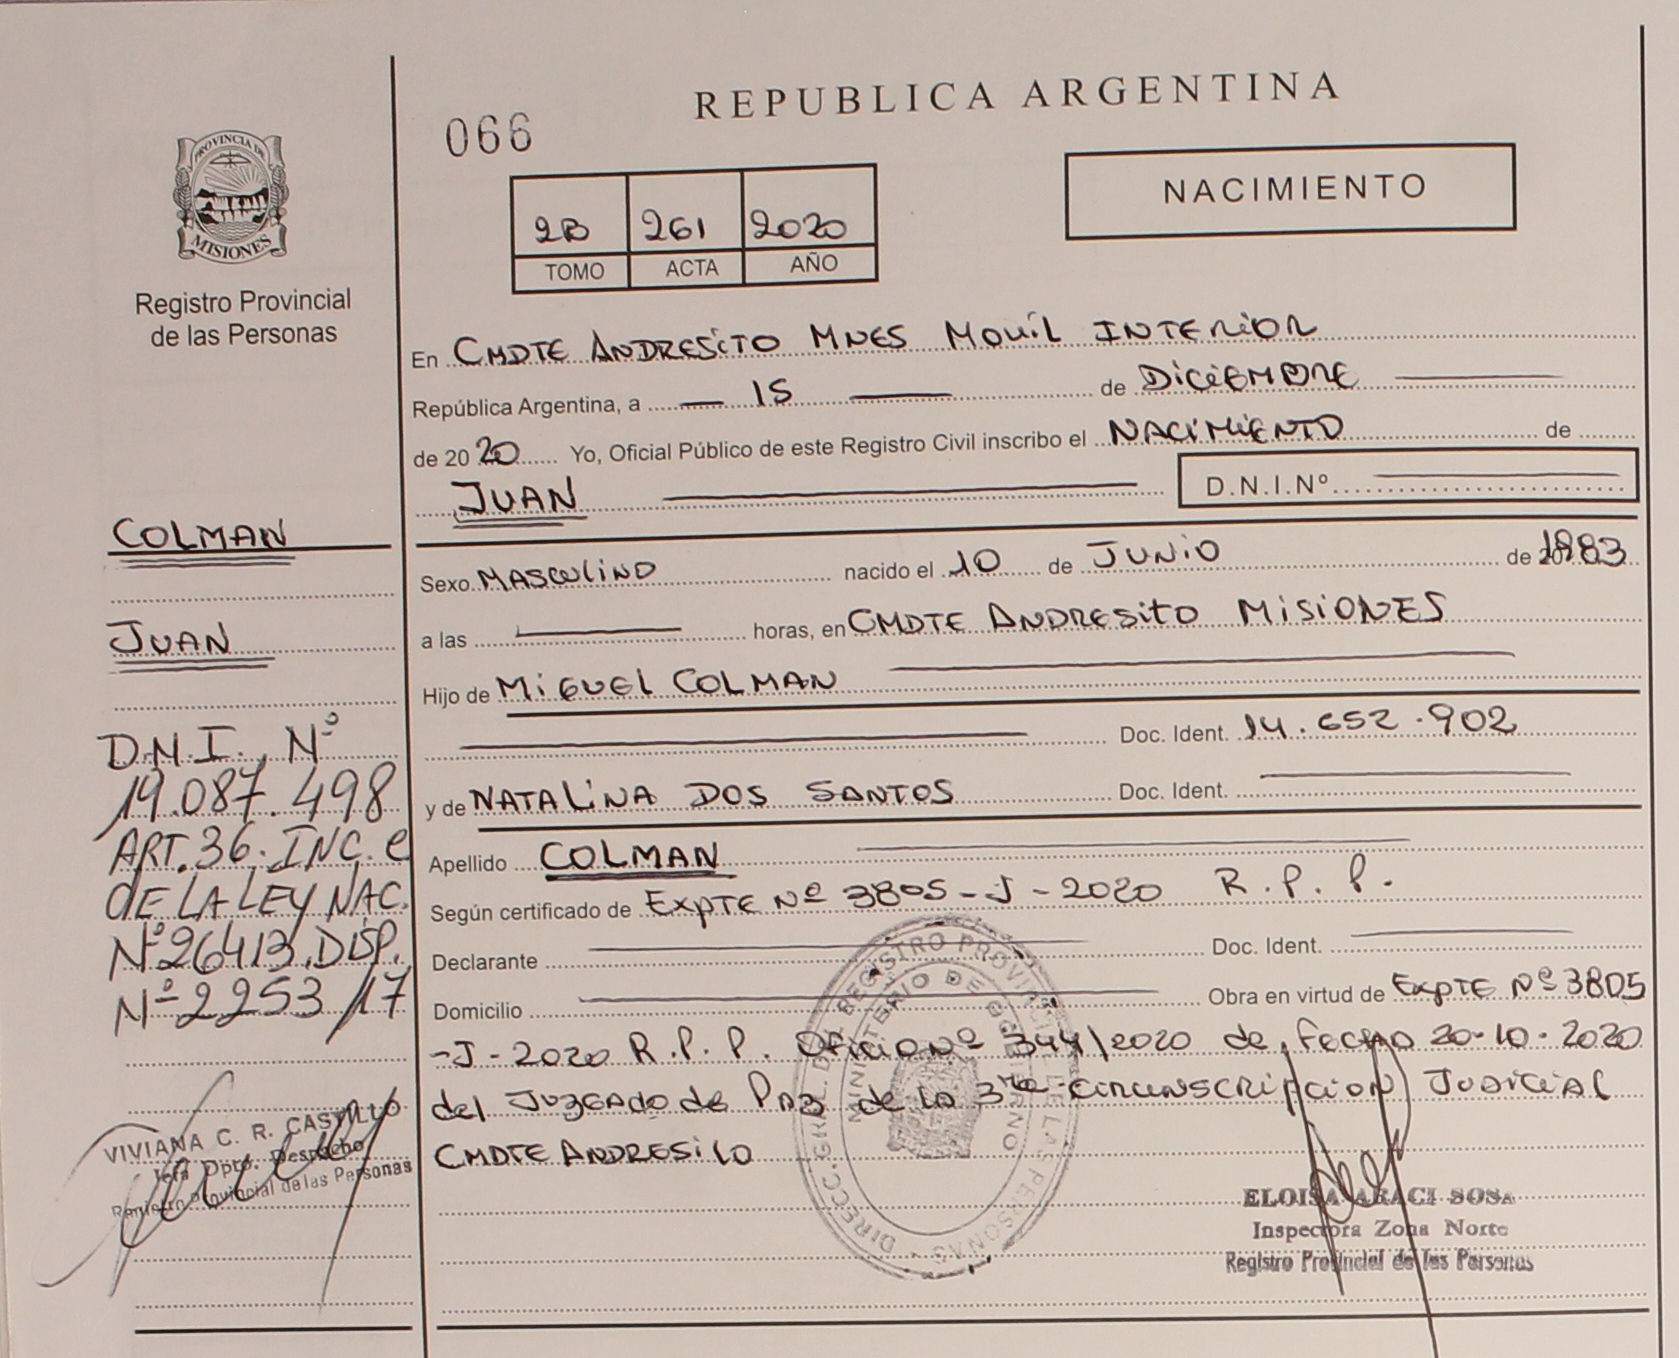 PROVINCIA DE
MISIONES
Registro Provincial
de las Personas
COLMAN
JUAN
D.N.I. Nº
19.087.498
ART.36.INC.e
DE LA LEY NAC.
Nº26413.DISP.
Nº2253/17
VIVIANA C. R. CASTILLO
Jefa Dpto. Despacho
Registro Provincial de las Personas
066
REPUBLICA ARGENTINA
2B 261 2020
TOMO ACTA AÑO
NACIMIENTO
En CMDTE ANDRESITO MNES MOVIL INTERIOR
República Argentina, a 15 de DICIEMBRE
de 2020 Yo, Oficial Público de este Registro Civil inscribo el NACIMIENTO de
JUAN D.N.I.Nº
Sexo MASCULINO nacido el 10 de JUNIO de 1983
a las horas, en CMDTE ANDRESITO MISIONES
Hijo de MIGUEL COLMAN
Doc. Ident. 14.652.902
y de NATALINA DOS SANTOS Doc. Ident.
Apellido COLMAN
Según certificado de EXPTE Nº 3805-J-2020 R.P.P.
Declarante Doc. Ident.
Domicilio Obra en virtud de EXPTE Nº 3805
-J-2020 R.P.P. OFICIO Nº 344/2020 de fecha 20-10-2020
del JUZGADO de PAZ de la 3ra CIRCUNSCRIPCION JUDICIAL
CMDTE ANDRESITO
DIRECC. GRAL. DEL REGISTRO PROVINCIAL DE LAS PERSONAS
MINISTERIO DE GOBIERNO
ELOISA ARACI SOSA
Inspectora Zona Norte
Registro Provincial de las Personas